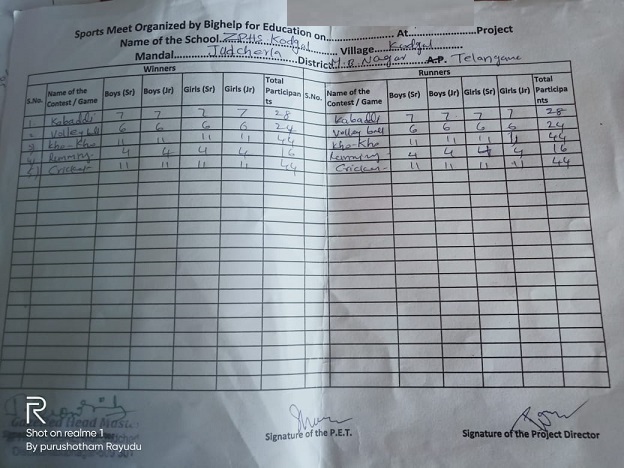 Sports Meet Organized by Bighelp for Education on.................... At....................Project
Name of the School...ZPHS Kodgal............ Village...Kodgal............
Mandal............Judcherla............District M.B. Nagar A.P. Telangana
Winners Runners
S.No. Name of the Contest / Game Boys (Sr) Boys (Jr) Girls (Sr) Girls (Jr) Total Participants S.No. Name of the Contest / Game Boys (Sr) Boys (Jr) Girls (Sr) Girls (Jr) Total Participants
1 Kabaddi 7 7 7 7 28 Kabaddi 7 7 7 7 28
2 Volley ball 6 6 6 6 24 Volley ball 6 6 6 6 24
3 Kho-Kho 11 11 11 11 44 Kho-Kho 11 11 11 11 44
4 Running 4 4 4 4 16 Running 4 4 4 4 16
5 Cricket 11 11 11 11 44 Cricket 11 11 11 11 44
Head
Signature of the P.E.T.
Signature of the Project Director
R
Shot on realme 1
By purushotham Rayudu